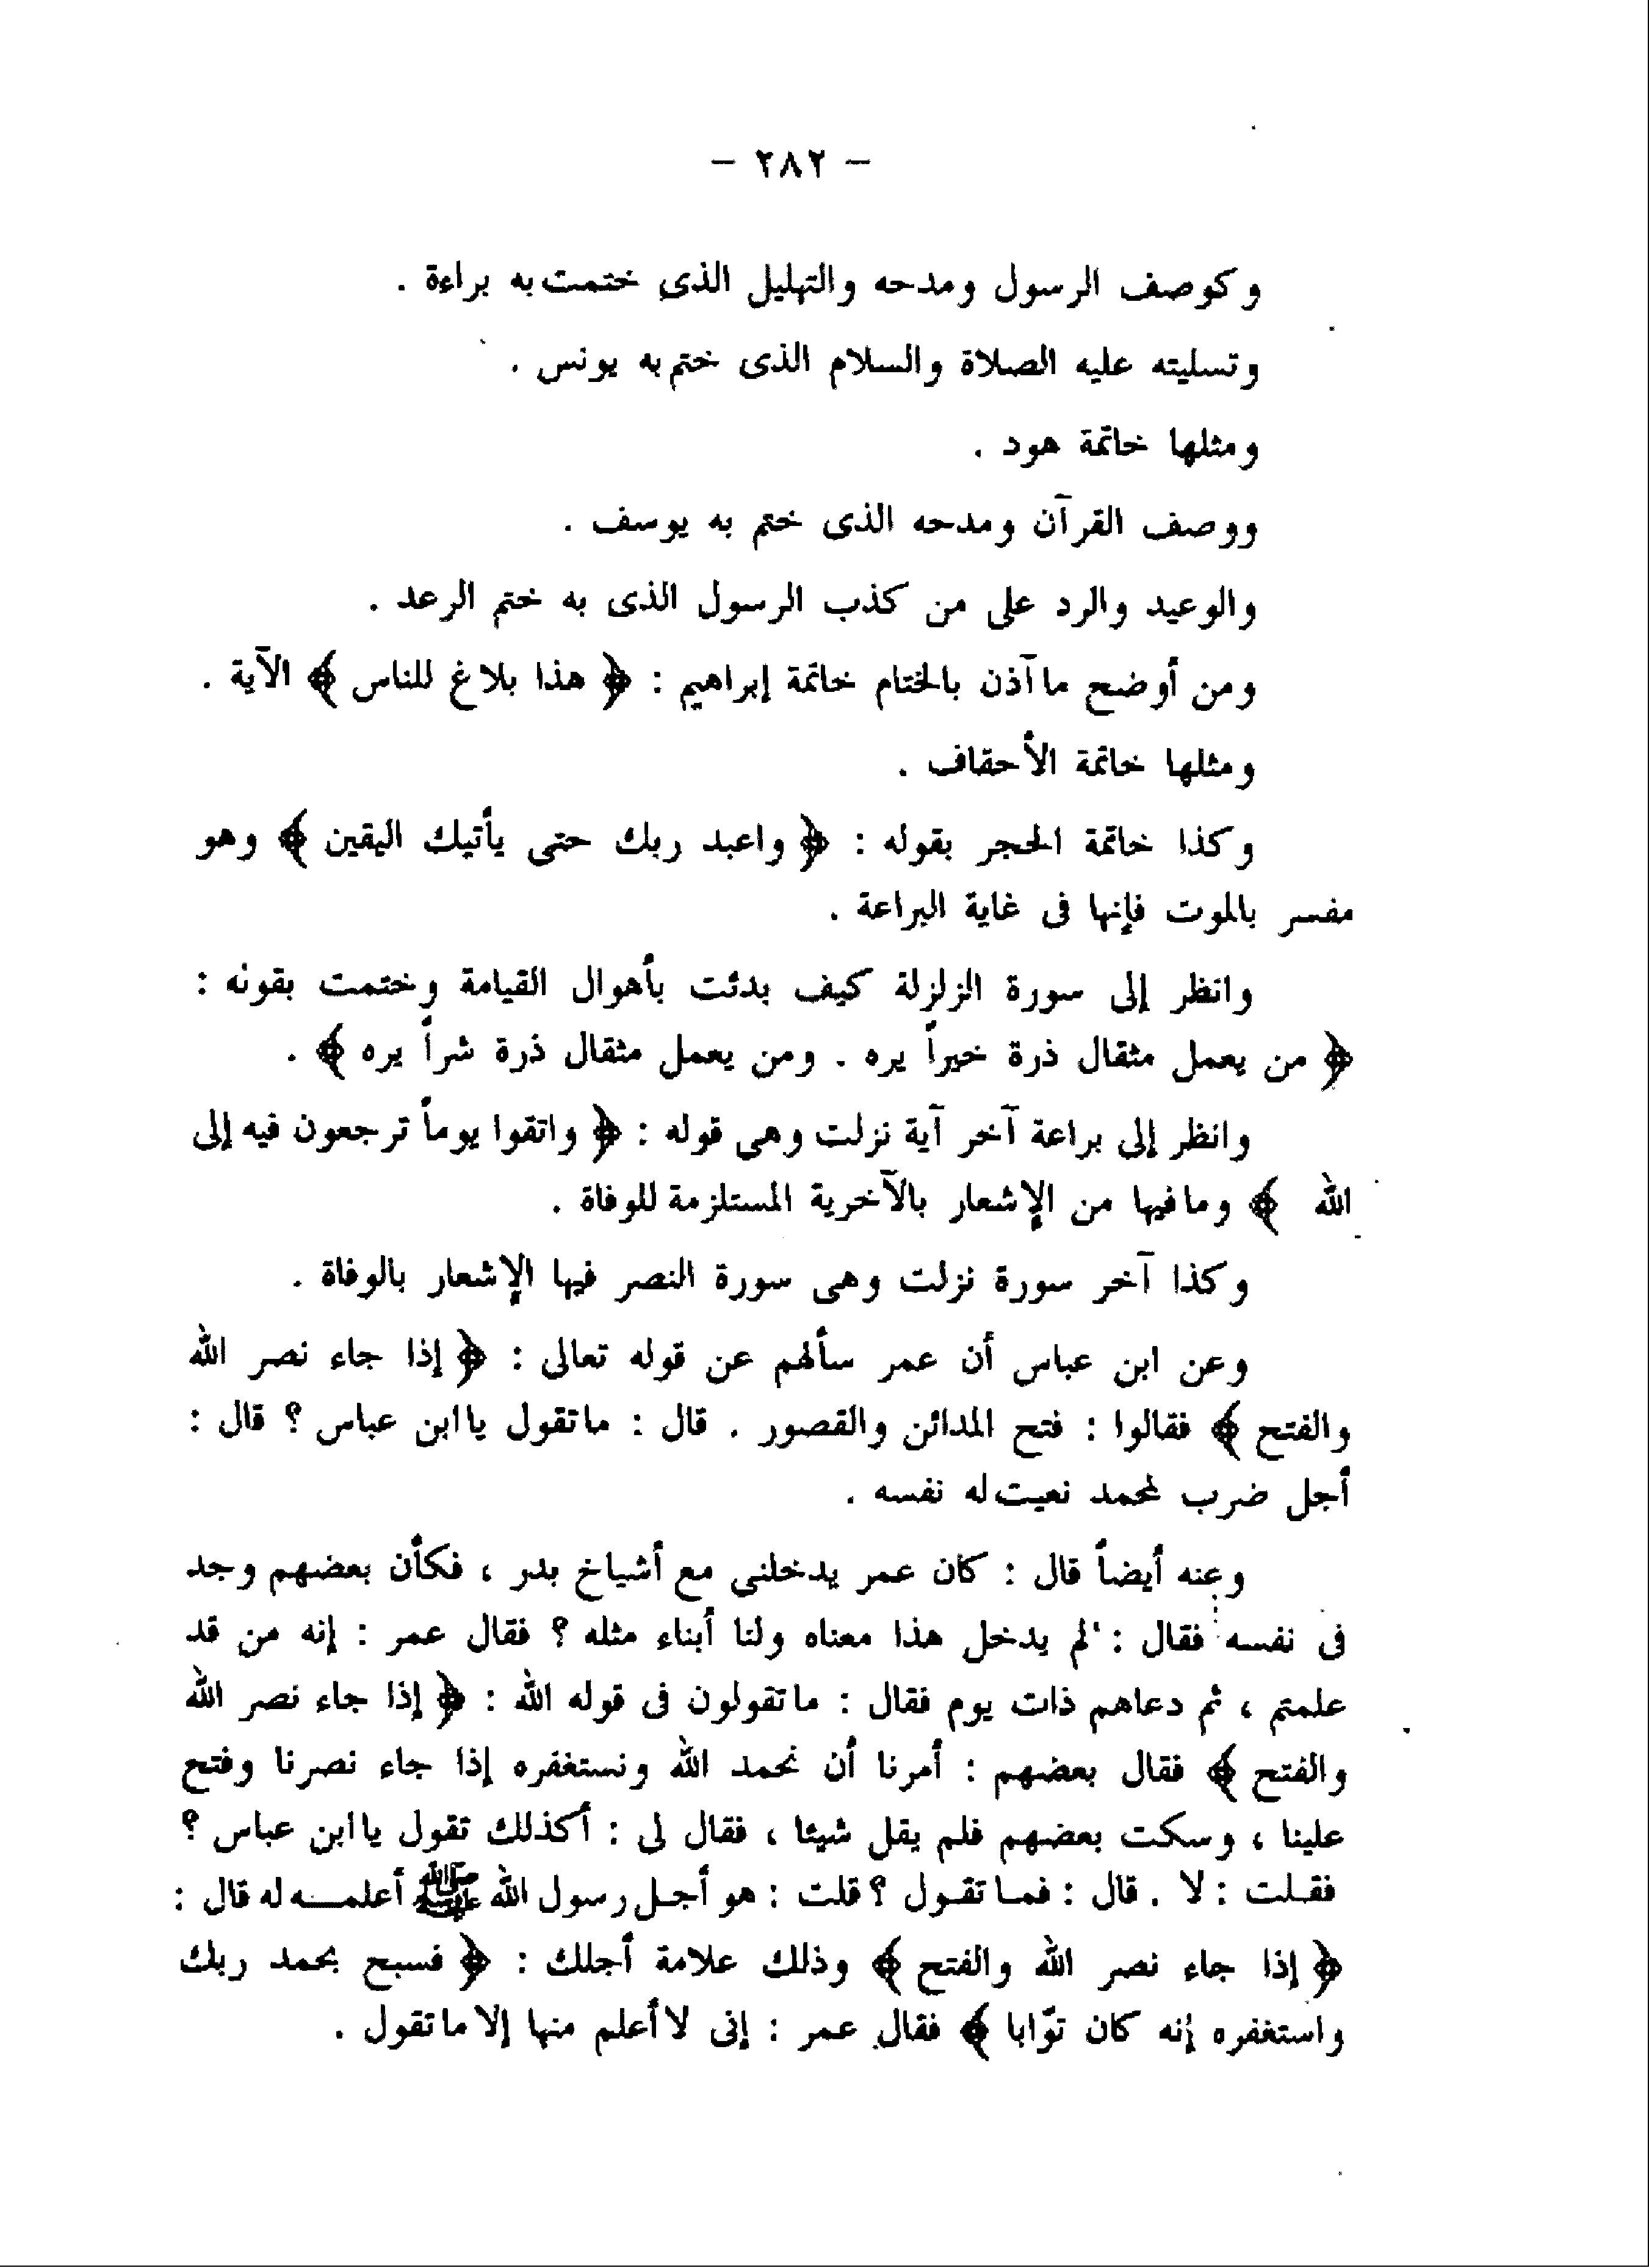 – ٢٨٢ –
وكوصف الرسول ومدحه والتهليل الذى ختمت به براءة .
وتسليته عليه الصلاة والسلام الذى ختم به يونس .
ومثلها خاتمة هود .
ووصف القرآن ومدحه الذى ختم به يوسف .
والوعيد والرد على من كذب الرسول الذى به ختم الرعد .
ومن أوضح ما آذن بالختام خاتمة إبراهيم : ﴿ هذا بلاغ للناس ﴾ الآية .
ومثلها خاتمة الأحقاف .
وكذا خاتمة الحجر بقوله : ﴿ واعبد ربك حتى يأتيك اليقين ﴾ وهو
مفسر بالموت فإنها فى غاية البراعة .
وانظر إلى سورة الزلزلة كيف بدئت بأهوال القيامة وختمت بقوله :
﴿ من يعمل مثقال ذرة خيراً يره . ومن يعمل مثقال ذرة شراً يره ﴾ .
وانظر إلى براعة آخر آية نزلت وهى قوله : ﴿ واتقوا يوماً ترجعون فيه إلى
الله ﴾ وما فيها من الإشعار بالآخرية المستلزمة للوفاة .
وكذا آخر سورة نزلت وهى سورة النصر فيها الإشعار بالوفاة .
وعن ابن عباس أن عمر سألهم عن قوله تعالى : ﴿ إذا جاء نصر الله
والفتح ﴾ فقالوا : فتح المدائن والقصور . قال : ما تقول يا ابن عباس ؟ قال :
أجل ضرب لمحمد نعيت له نفسه .
وعنه أيضاً قال : كان عمر يدخلنى مع أشياخ بدر ، فكأن بعضهم وجد
فى نفسه فقال : لم يدخل هذا معناه ولنا أبناء مثله ؟ فقال عمر : إنه من قد
علمتم ، ثم دعاهم ذات يوم فقال : ما تقولون فى قوله الله : ﴿ إذا جاء نصر الله
والفتح ﴾ فقال بعضهم : أمرنا أن نحمد الله ونستغفره إذا جاء نصرنا وفتح
علينا ، وسكت بعضهم فلم يقل شيئا ، فقال لى : أكذلك تقول يا ابن عباس ؟
فقلت : لا . قال : فما تقول ؟ قلت : هو أجل رسول الله ﷺ أعلمه له قال :
﴿ إذا جاء نصر الله والفتح ﴾ وذلك علامة أجلك : ﴿ فسبح بحمد ربك
واستغفره إنه كان توّابا ﴾ فقال عمر : إنى لا أعلم منها إلا ما تقول .